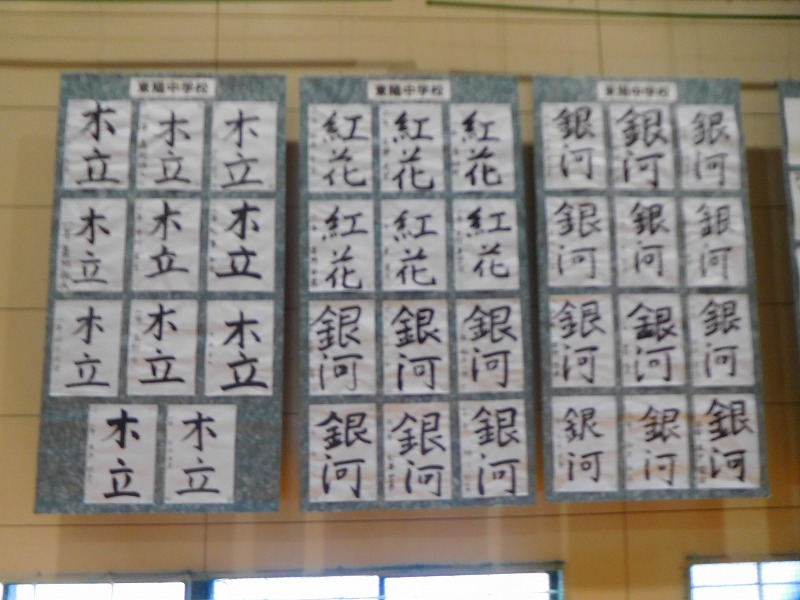 東陽中学校
木立
木立
木立
木立
木立
木立
木立
木立
木立
木立
木立
東陽中学校
紅花
紅花
紅花
紅花
紅花
紅花
銀河
銀河
銀河
銀河
銀河
銀河
東陽中学校
銀河
銀河
銀河
銀河
銀河
銀河
銀河
銀河
銀河
銀河
銀河
銀河